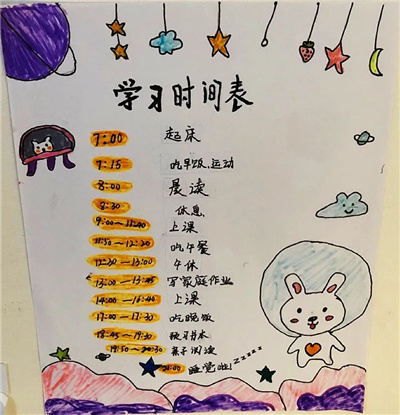 学习时间表
7:00 起床
7:15 吃早饭、运动
8:00 晨读
8:30 休息
9:00~11:40 上课
11:50~12:20 吃午餐
12:30~13:00 午休
13:00~13:45 写家庭作业
14:00~16:40 上课
17:00~17:30 吃晚饭
18:45~19:30 预习书本
19:50~20:30 亲子阅读
21:00 睡觉啦!Zzzzzz